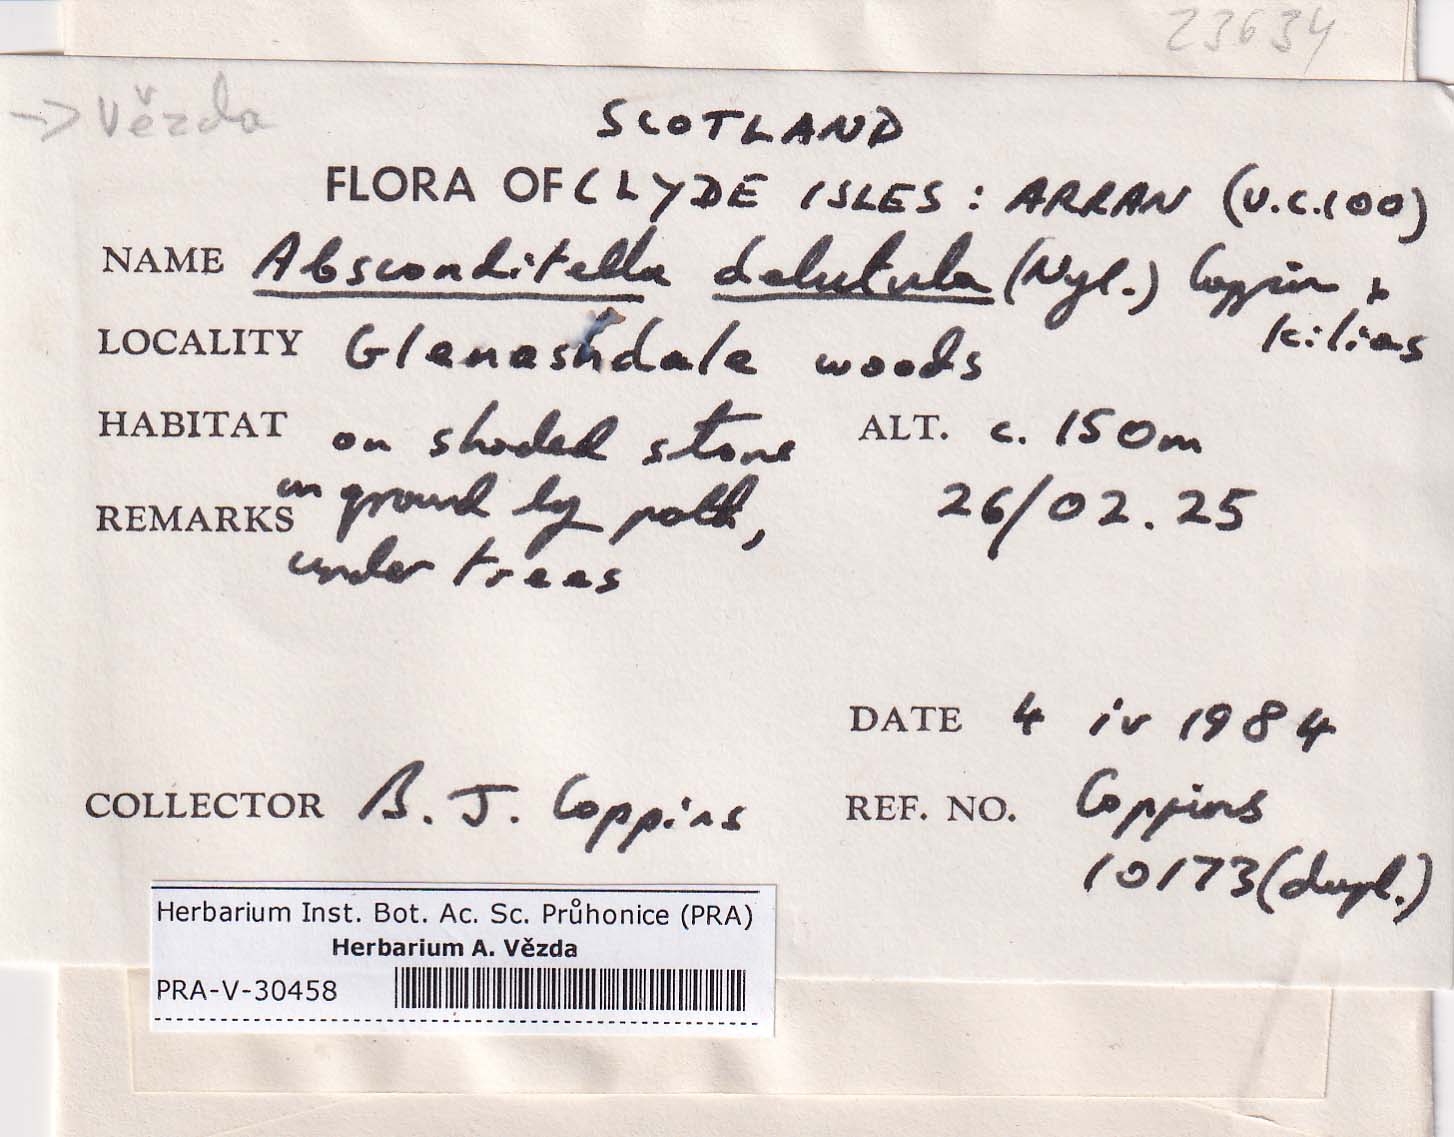 23634
→ Vězda
SCOTLAND
FLORA OF CLYDE ISLES : ARRAN (V.C.100)
NAME Absconditella delutula (Nyl.) Coppins &
Kilias
LOCALITY Glenashdale woods
HABITAT on shaded stone
ALT. c. 150m
REMARKS in ground by path,
under trees
26/02.25
DATE 4 iv 1984
COLLECTOR B. J. Coppins
REF. NO. Coppins
10173 (dupl.)
Herbarium Inst. Bot. Ac. Sc. Průhonice (PRA)
Herbarium A. Vězda
PRA-V-30458